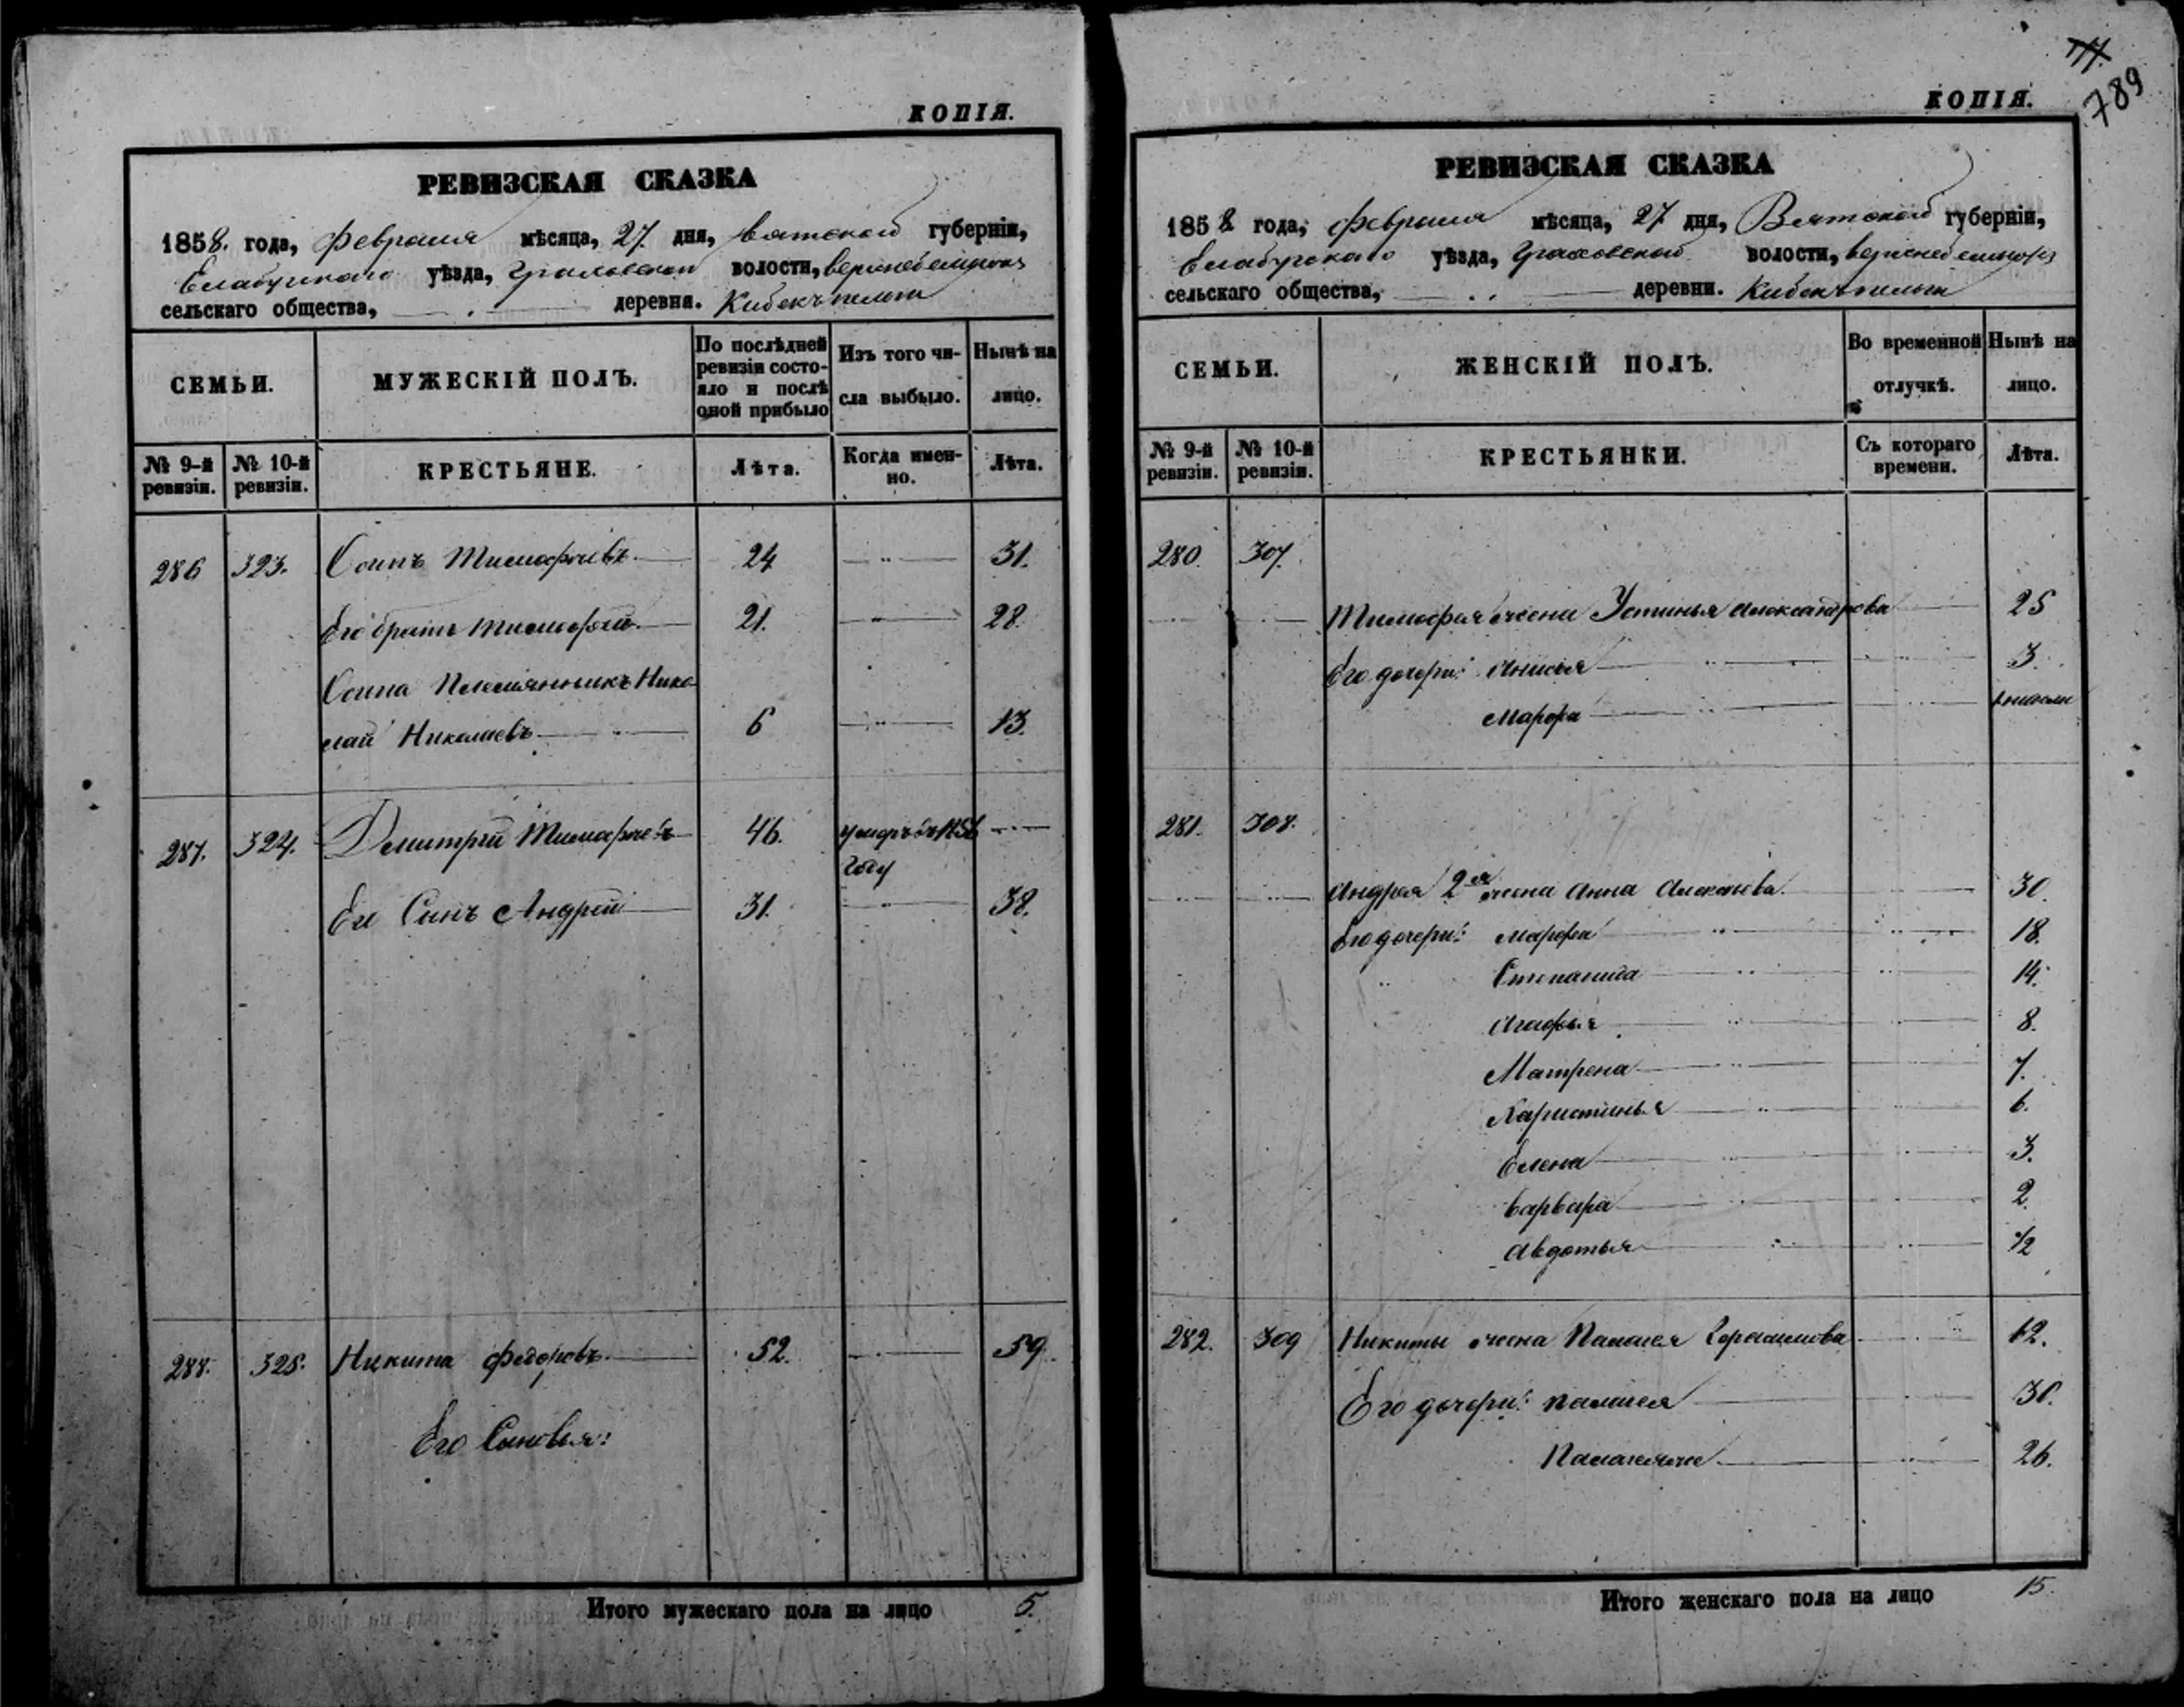 КОПІЯ.
РЕВИЗСКАЯ СКАЗКА
1858. года, февраля мѣсяца, 27 дня, Вятской губерніи,
Елабужскаго уѣзда, Граховской волости,
сельскаго общества, деревня. Кибекъпельги
СЕМЬИ.
МУЖЕСКІЙ ПОЛЪ.
По послѣдней ревизіи состояло и послѣ оной прибыло
Изъ того числа выбыло.
Нынѣ на лицо.
№ 9-й ревизіи.
№ 10-й ревизіи.
КРЕСТЬЯНЕ.
Лѣта.
Когда именно.
Лѣта.
286 323. Тимофѣевъ 24 31.
Его братъ Тимофей 21. 28.
Племянникъ Нико-
лай Николаевъ 6 13.
287. 324. Дмитрій Тимофѣевъ 46. умеръ въ 1856
году
Его Сынъ Андрей 31. 38.
288. 325. Никита Федоровъ 52. 59.
Его Сыновья:
Итого мужескаго пола на лицо 5.
777.
789
КОПІЯ.
РЕВИЗСКАЯ СКАЗКА
1858 года, февраля мѣсяца, 27 дня, Вятской губерніи,
Елабужскаго уѣзда, Граховской волости,
сельскаго общества, деревни. Кибекъпельги
СЕМЬИ.
ЖЕНСКІЙ ПОЛЪ.
Во временной отлучкѣ.
Нынѣ на лицо.
№ 9-й ревизіи.
№ 10-й ревизіи.
КРЕСТЬЯНКИ.
Съ котораго времени.
Лѣта.
280. 307.
Тимофея жена Устинья Александрова 25
Его дочери: Анисья 3.
Марфа
281. 308.
Андрея 2ая жена Анна Алексѣева. 30.
Его дочери: Марфа 18.
Степанида 14.
Агафья 8.
Матрена 7.
Харистинья 6.
Елена 3.
Варвара 2.
Авдотья 1/2
282. 309 Никиты жена Пелагея Герасимова 62.
Его дочери: Пелагея
26.
Итого женскаго пола на лицо 15.